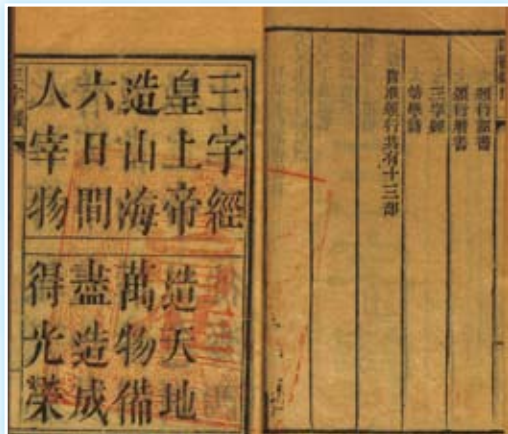 頒行詔書
頒行曆書
三字經
幼學詩
旨准頒行共有十三部
三字經
皇上帝 造天地
造山海 萬物備
六日間 盡造成
人宰物 得光榮
三字經